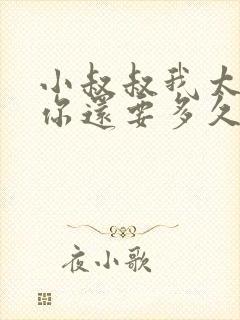 小叔叔我大
你還要多久
夜小歌